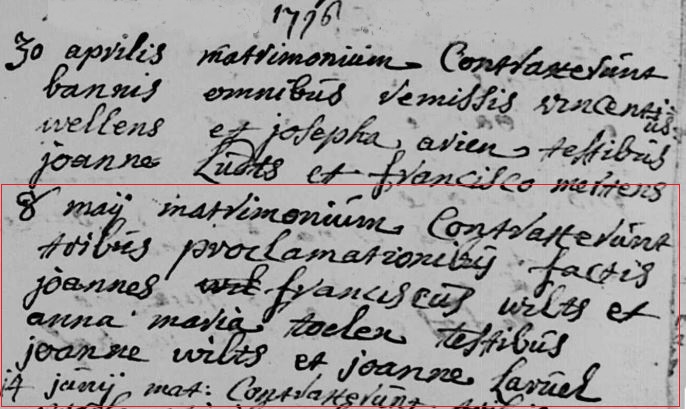 1776
30 aprilis matrimonium Contraxerunt
bannis omnibus remissis vincenti:
us:
wellens et josepha arien testibus
joanne Luÿts et francisco mertens
8 maij matrimonium Contraxerunt
tribus proclamationibus factis
joannes franciscus wilts et
anna maria toelen testibus
joanne wilts et joanne Laruel
14 junij mat: Contraxerunt